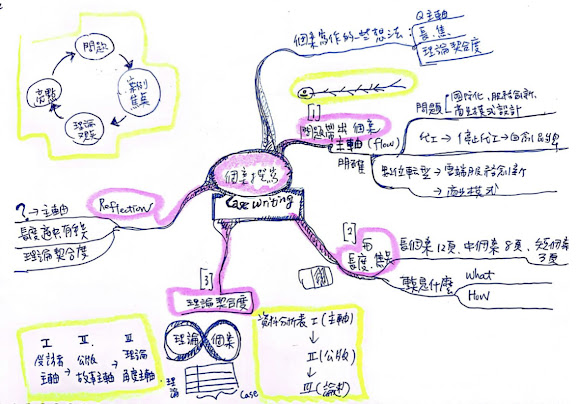 問題
案例
焦點
理論
觀點
個案寫作的一些想法:
Q主軸
長.焦
理論契合度
[1]
問題帶出個案
主軸(flow)
明確
問題
國際化,服務創新,
商業模式設計
代工→停止代工→自創品牌
數位轉型→雲端服務創新
→商業模式
個案撰寫
Case Writing
Reflection
?→主軸
長度適中有缺
理論契合度
[2]
長度.焦點
長個案12頁、中個案8頁、短個案
3頁
重點是什麼
What
How
[3]
理論契合度
理論
個案
理論
Case
資料分析表 I(主軸)
↓
II(公版)
↓
III(論料)
I II. III
受訪者 公版 理論
主軸 → 故事主軸 → 角度主軸